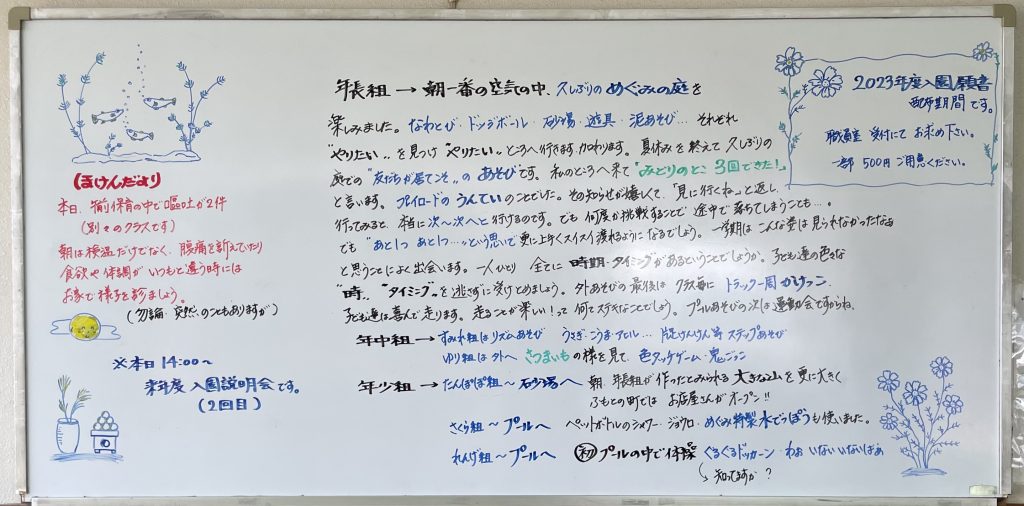 ほけんだより
本日、午前保育の中で嘔吐が2件
(別々のクラスです)
朝は検温だけでなく、腹痛を訴えていたり
食欲や体調がいつもと違う時には
お家で様子を診ましょう。
(勿論 突然、のこともありますが)
※本日14:00~
来年度 入園説明会です。
(2回目)
年長組→朝一番の空気の中、久しぶりのめぐみの庭を
楽しみました。なわとび・ドッジボール・砂場・遊具・泥あそび… それぞれ
"やりたい"を見つけ"やりたい"ところへ行きます、加わります。夏休みを終えて久しぶりの
庭での"友だちが居てこそ"のあそびです。私のところへ来て「みどりのとこ 3回できた!」
と言います。プレイロードのうんていのことでした。その知らせが嬉しくて、「見に行くね」と返し、
行ってみると、本当に次へ次へと行けるのです。でも何度か挑戦することで途中で落ちてしまうことも…。
でも"あと1つ あと1つ…"という思いで更に上手くスイスイ渡れるようになるでしょう。一学期はこんな姿は見られなかったなぁ
と思うことによく出会います。一人ひとり 全てに時期・タイミングがあるということでしょうか。子ども達の色々な
"時"、"タイミング"を逃さずに受けとめましょう。外あそびの最後はクラス毎にトラック一周かけっこ。
子ども達は喜んで走ります。走ることが楽しい!って何てステキなことでしょう。プールあそびの次は運動会ですからね。
年中組→すみれ組はリズムあそび うさぎ・こうま・アヒル… 片足けんけん等 ステップあそび
ゆり組は外へ さつまいもの様を見て、色タッチゲーム・鬼ごっこ
年少組→たんぽぽ組~砂場へ 朝、年長組が作ったとみられる大きな山を更に大きく
ふもとの町では お店屋さんがオープン!!
さくら組~プールへ ペットボトルのシャワー・ジョウロ・めぐみ特製水でっぽうも使いました。
れんげ組~プールへ 初 プールの中で体操 ぐるぐるドッカーン・わぉ・いないいないばぁ
知ってますか?
2023年度入園願書
配布期間です。
職員室 受付にて お求め下さい。
一部 500円 ご用意ください。